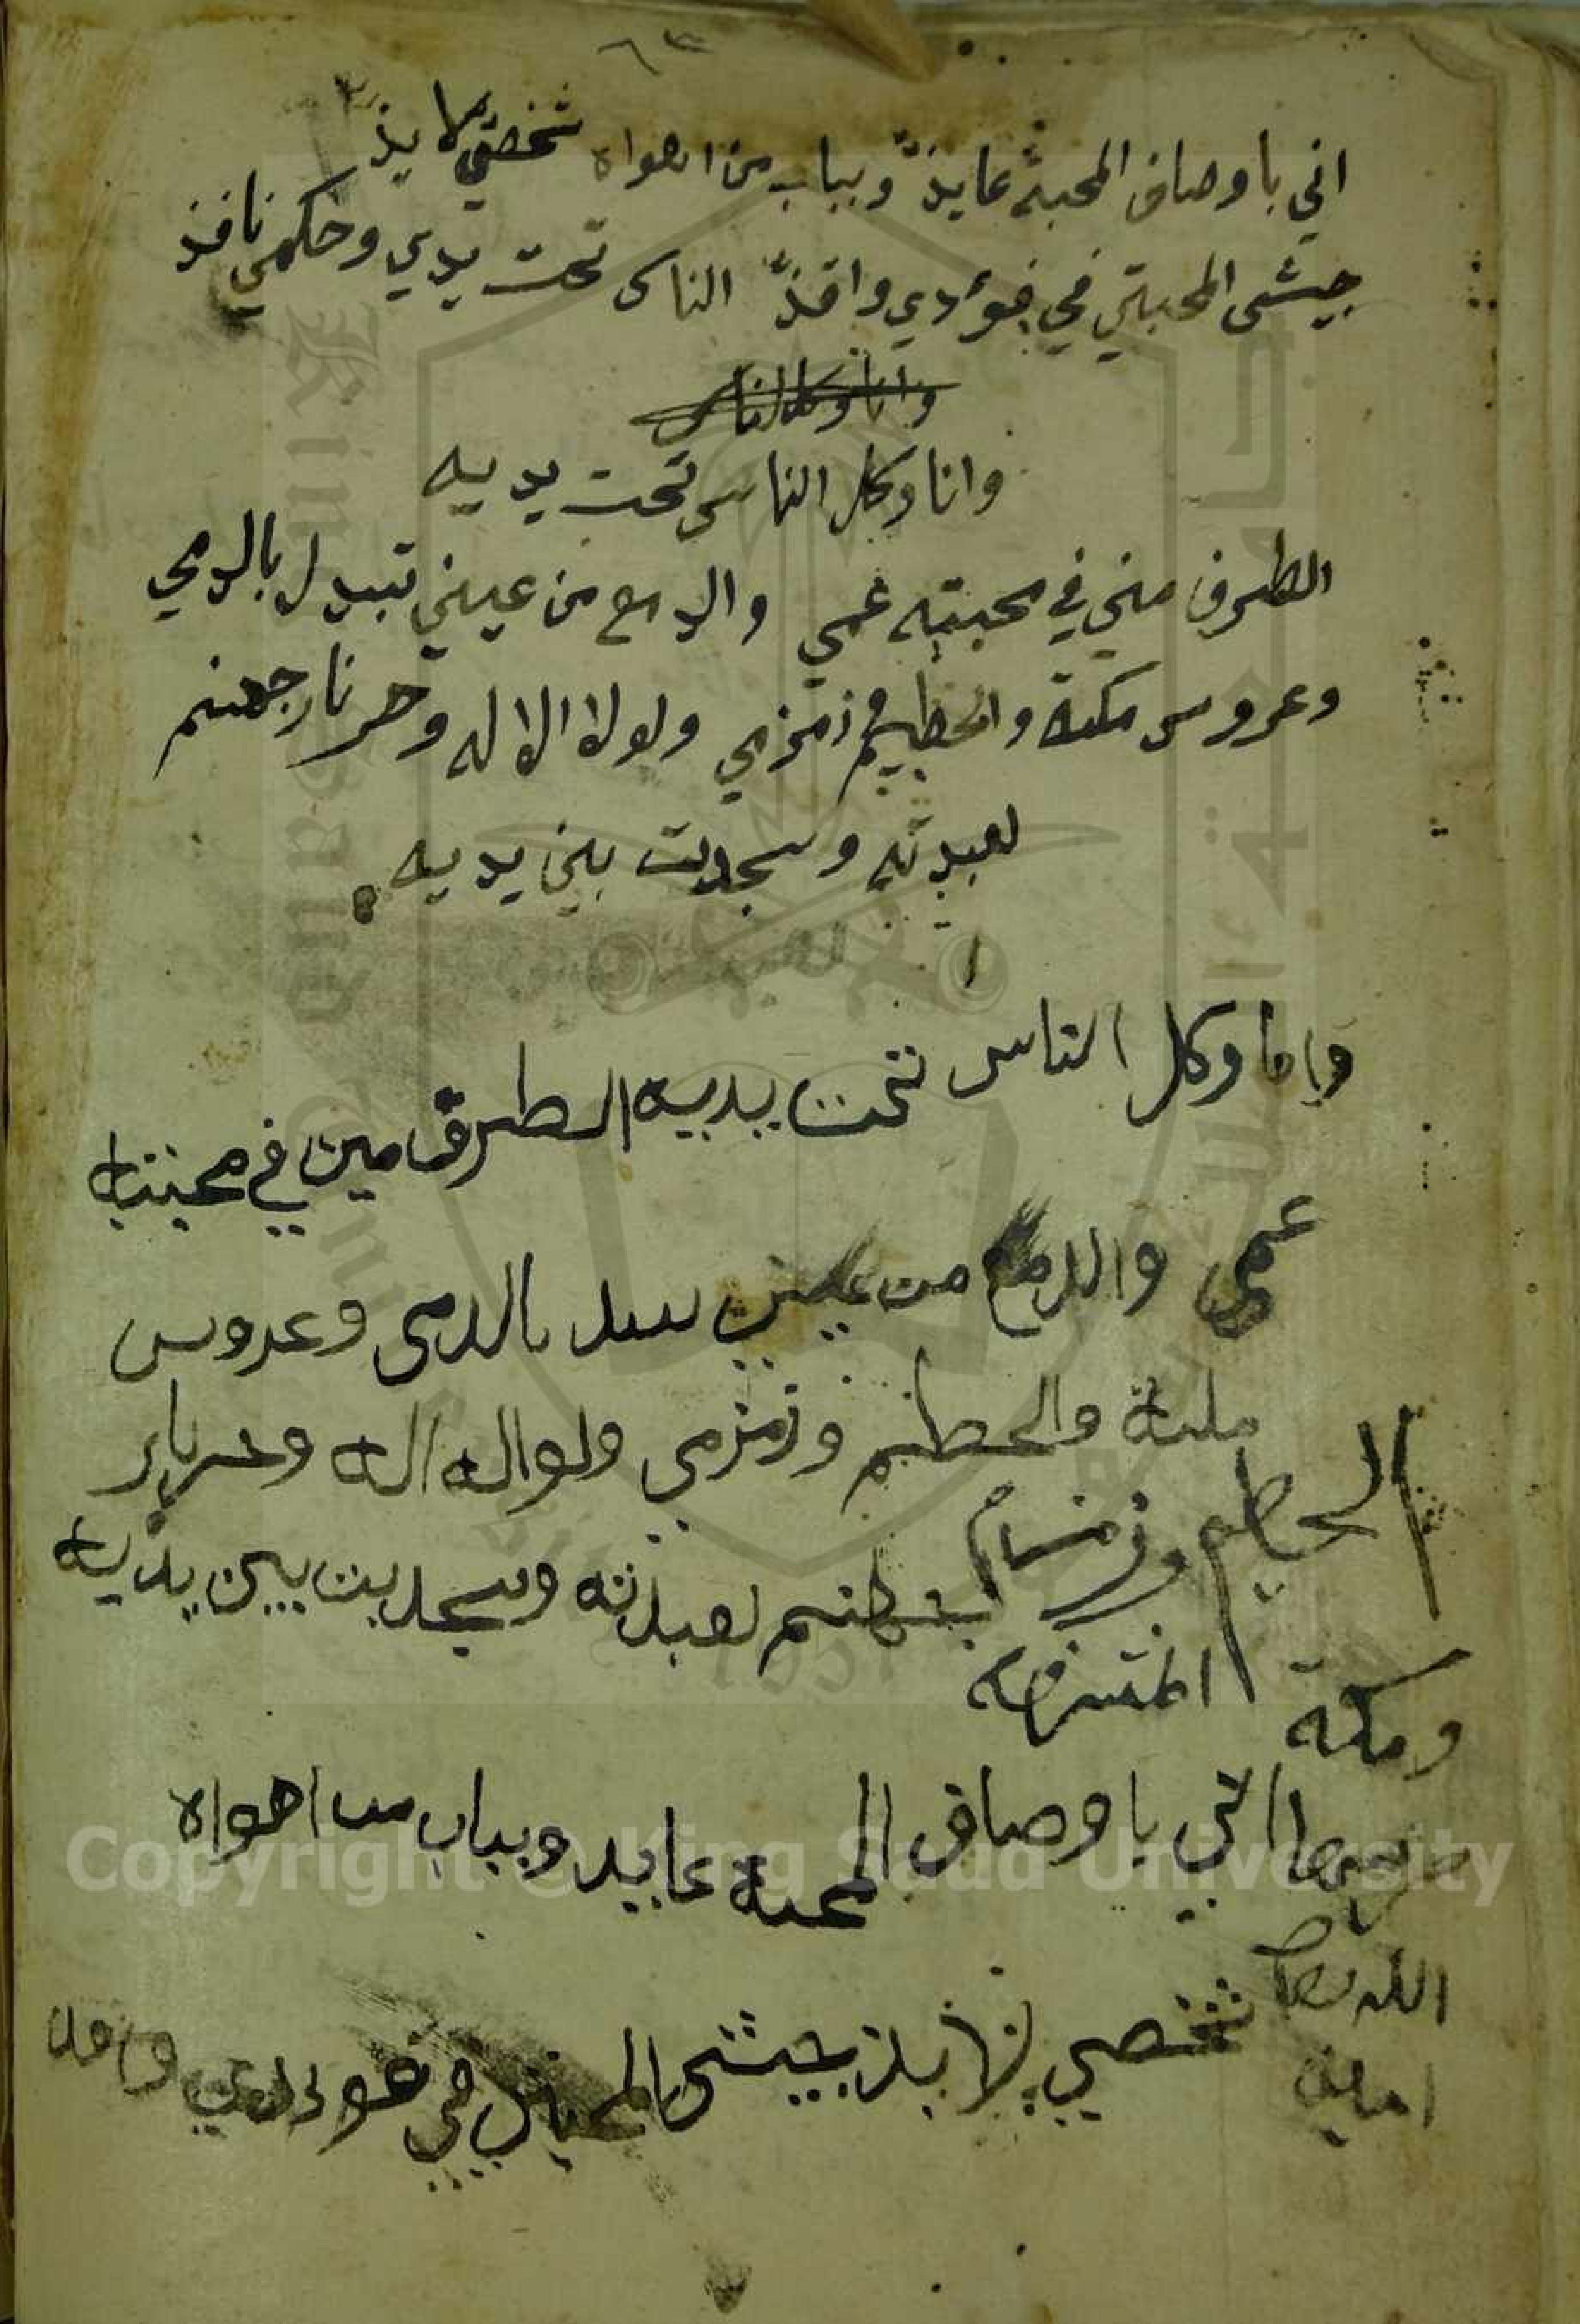 ٦٣
اني باوصاف المحبة عايذ وبباب من اهواه شخصي لايذ
جيشى المحبتي في فؤدي واقذ الناس تحت يدي وحكمي نافذ
وانا وكل الناس
وانا وكل الناس تحت يديه
الطرف مني في محبته عمي والدمع من عيني تبدل بالدمي
وعروس مكة والحطيم زمزمي ولولا الاله وحر نار جهنم
لعبدته وسجدت بين يديه
وانا وكل الناس تحت يديه الطرف مين في محبتاه
عمى والدمع من عيني سدل بالدمى وعروس
مكة والحطيم وزمزمي ولواله اله وحر نار
الحطيم وزمزم
جهنم لعبدته وسجدت بين يديه
ومكة المشرفه
اني باوصاف المحبة عايد وبباب من اهواه
الله
شخصي لايذ جيشى المحبتي في فودي واقد
امين
Copyright © King Saud University
جامعة الملك سعود
1957